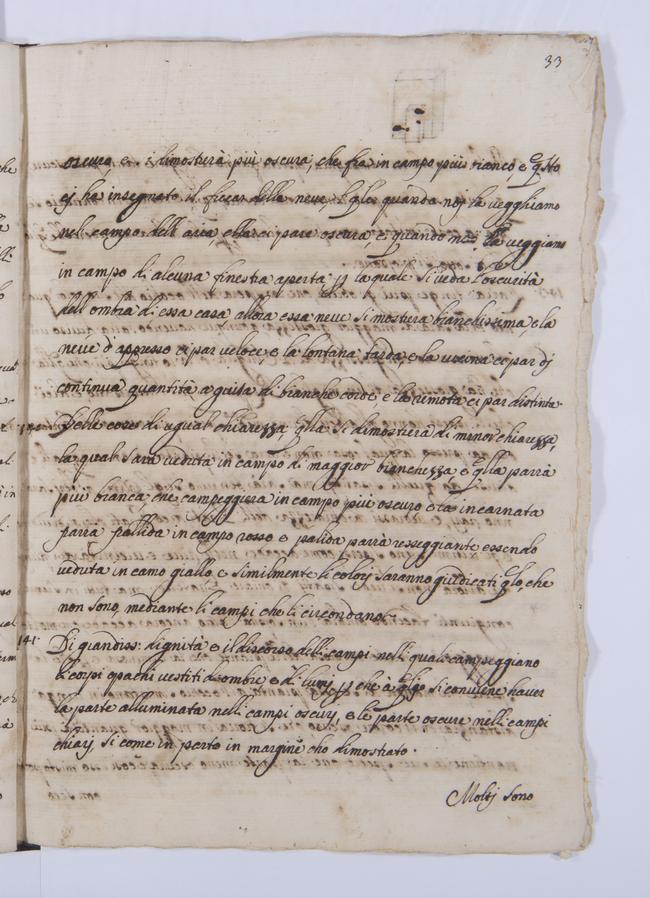 33
oscura, e si dimosterà più oscura, che fia in campo più bianco e qsto
ci ha insegnato il fioccar della neve, la qle quando noj la vegghiamo
nell campo dell aria ella ci pare oscura, e quando noj la veggiamo
in campo di alcuna finestra aperta la quale si veda l'oscurità
dell ombra di essa casa allora essa neve si mostera bianchissima, e la
neve d'appresso ci par veloce, e la lontana tarda, e la vicina ci par dj
continua quantità a guisa di bianche corde e la remota ci par distinta.
Delle cose di ugual chiarezza qlla si dimostera di minor chiarezza,
la qual sara veduta in campo di maggior bianchezza e qlla parrà
più bianca che campeggiera in campo più oscuro e la incarnata
parrà pallida in campo rosso e palida parrà rosseggiante essendo
veduta in camo giallo, e similmente li colorj saranno giudicati qlo, che
non sono, mediante li campi che li circondano.
141. Di grandiss: dignità e il discorso delli campi nelli quali campeggiano
li corpi opachi vestiti d'ombre, e di lumj che à qlle si conviene haver
la parte alluminata nelli campi oscurj, e le parte oscure nelli campi
chiarj, si come in parto in margine ho dimostrato.
Moltj sono